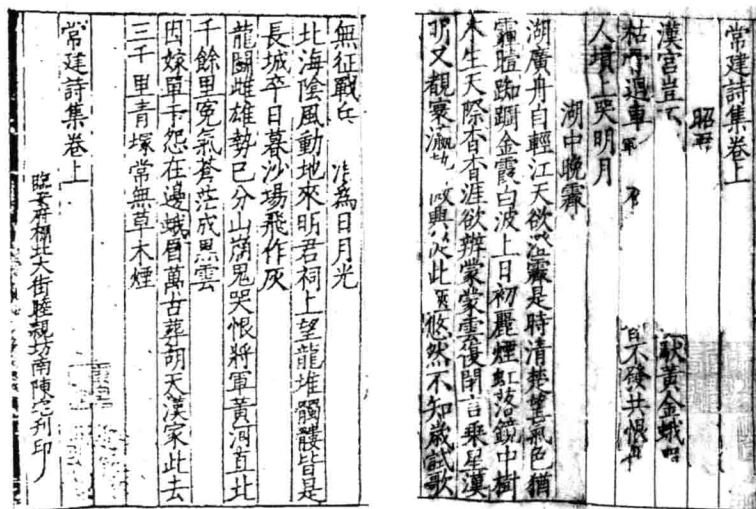 常建詩集卷上
昭君
漢宮豈不 馱黃金蛾眉
枯骨迴車 不發共恨
人墳上哭明月
湖中晚霽
湖廣舟自輕江天欲澄霽是時清楚望氣色猶
霾曀踟躕金霞白波上日初麗煙虹落鏡中樹
木生天際杳杳涯欲辨蒙蒙雲復閉言乘星漢
明又覩寰瀛勢 興從此 悠然不知歲試歌
無征戰兵 為日月光
北海陰風動地來明君祠上望龍堆髑髏皆是
長城卒日暮沙場飛作灰
龍鬬雌雄勢已分山崩鬼哭恨將軍黃河直北
千餘里冤氣蒼茫成黑雲
因嫁單于怨在邊蛾眉萬古葬胡天漢家此去
三千里青塚常無草木煙
常建詩集卷上
臨安府棚北大街睦親坊南陳宅刊印